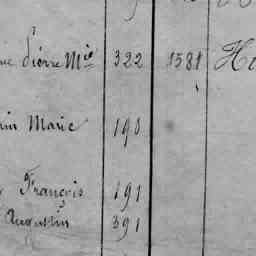 Pierre Mie 322 1381 H
Marie 190
François 191
Augustin 391